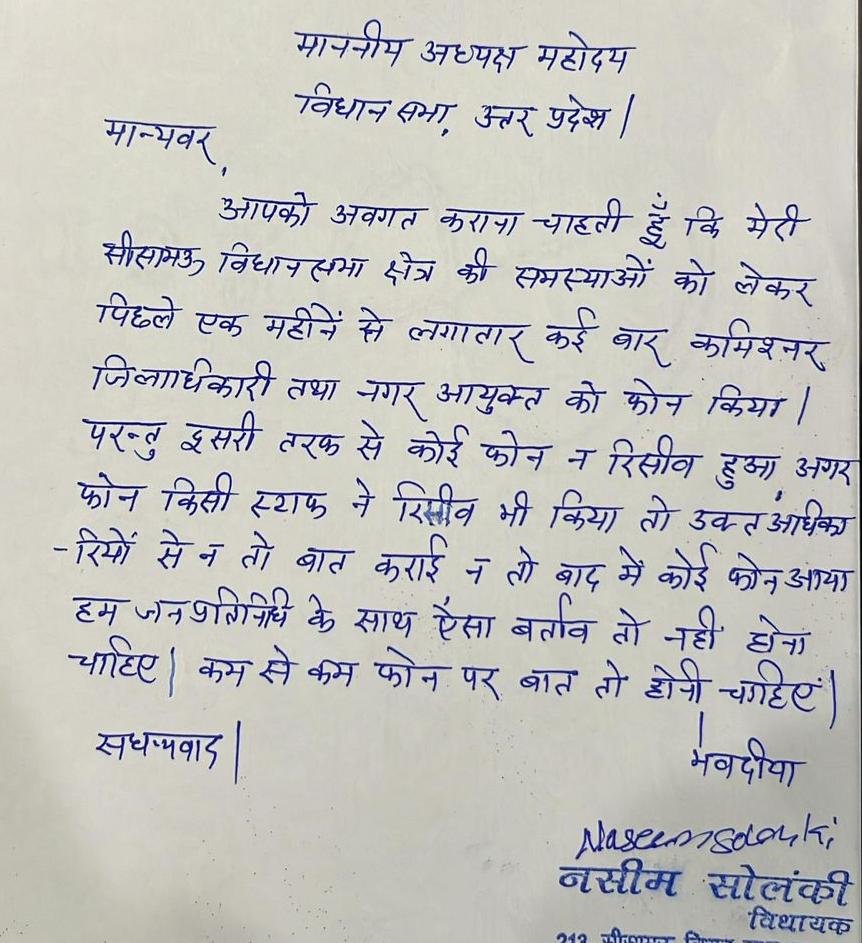 माननीय अध्यक्ष महोदय
विधान सभा, उत्तर प्रदेश |
मान्यवर,
आपको अवगत कराना चाहती हूँ कि मेरी
सीसामऊ विधानसभा क्षेत्र की समस्याओं को लेकर
पिछले एक महीनें से लगातार कई बार कमिश्नर,
जिलाधिकारी तथा नगर आयुक्त को फोन किया |
परन्तु दूसरी तरफ से कोई फोन न रिसीव हुआ, अगर
फोन किसी स्टाफ ने रिसीव भी किया तो उक्त अधिका
-रियों से न तो बात कराई न तो बाद में कोई फोन आया
हम जनप्रतिनिधि के साथ ऐसा बर्ताव तो नहीं होना
चाहिए | कम से कम फोन पर बात तो होनी चाहिएं |
सधन्यवाद |
भवदीया
Naseem Solanki
नसीम सोलंकी
विधायक
213